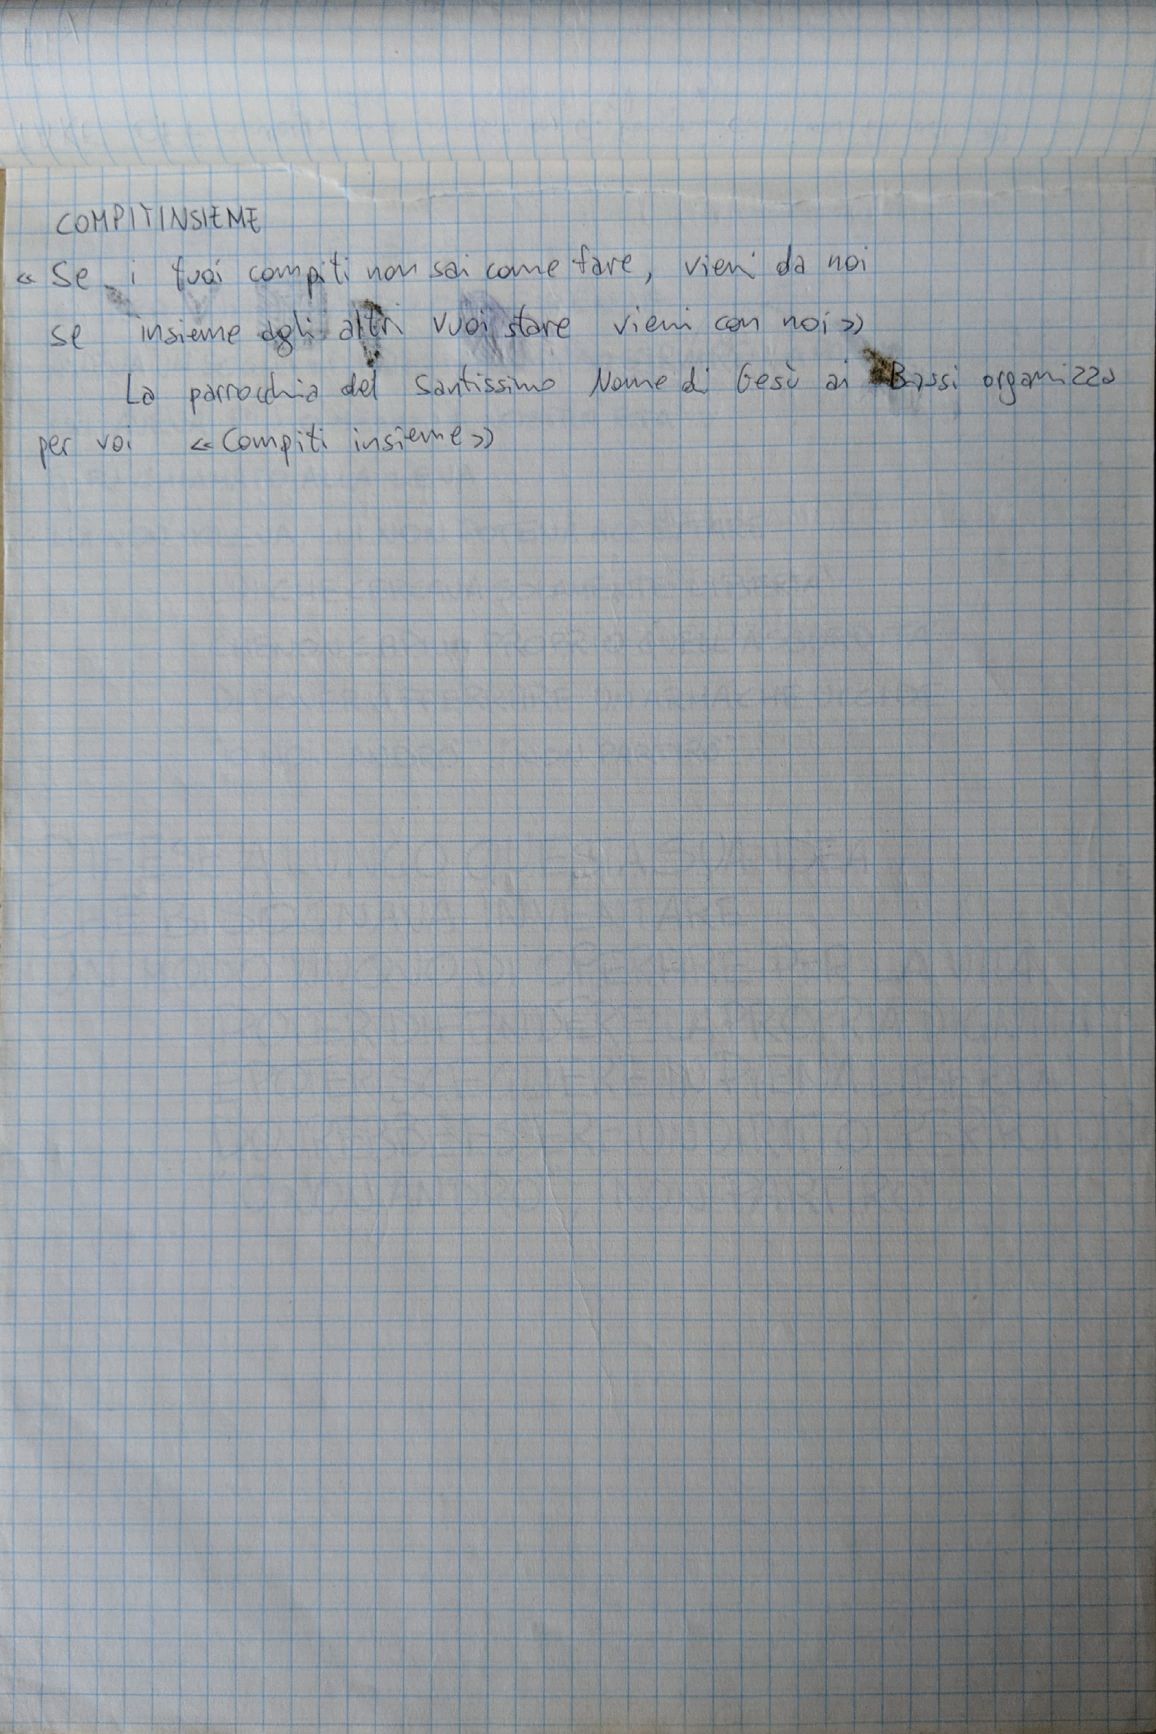 COMPITINSIEME
« Se i tuoi compiti non sai come fare, vieni da noi
se insieme agli altri vuoi stare vieni con noi »
La parrocchia del Santissimo Nome di Gesù ai Bassi organizza
per voi « Compiti insieme »